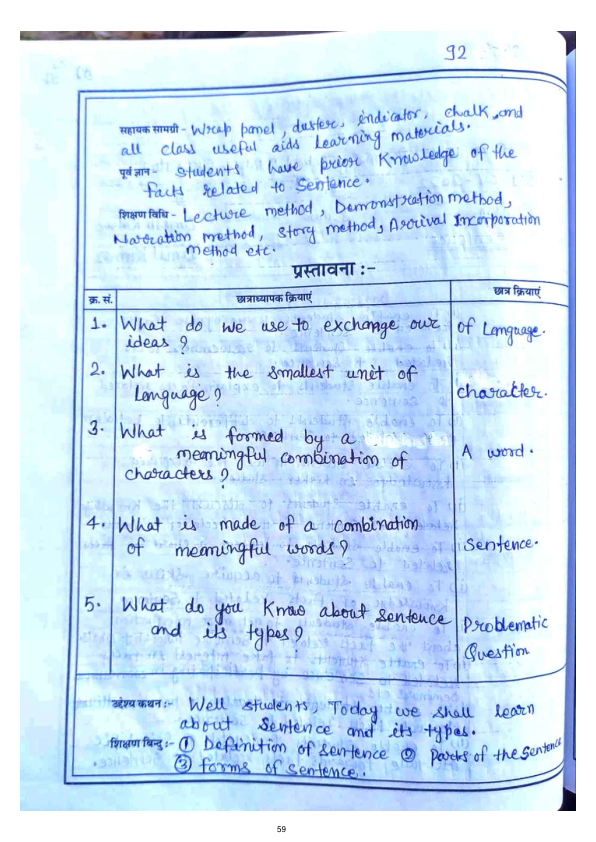 92
सहायक सामग्री - Wrap panel, duster, indicator, chalk, and
all class useful aids Learning materials.
पूर्व ज्ञान - students have prior Knowledge of the
facts related to Sentence.
शिक्षण विधि - Lecture method, Demonstration method,
Narration method, story method, Arrival Incorporation
method etc.
प्रस्तावना :-
क्र. सं. छात्राध्यापक क्रियाएं छात्र क्रियाएं
1. What do we use to exchange our of Language.
ideas ?
2. What is the smallest unit of
Language ? character.
3. What is formed by a
meaningful combination of A word.
characters ?
4. What is made of a combination
of meaningful words ? Sentence.
5. What do you Know about sentence
and its types ? Problematic
Question
उद्देश्य कथन :- Well students, Today we shall learn
about Sentence and its types.
शिक्षण बिन्दु :- ① Definition of sentence ② parts of the sentence
③ forms of sentence.
59